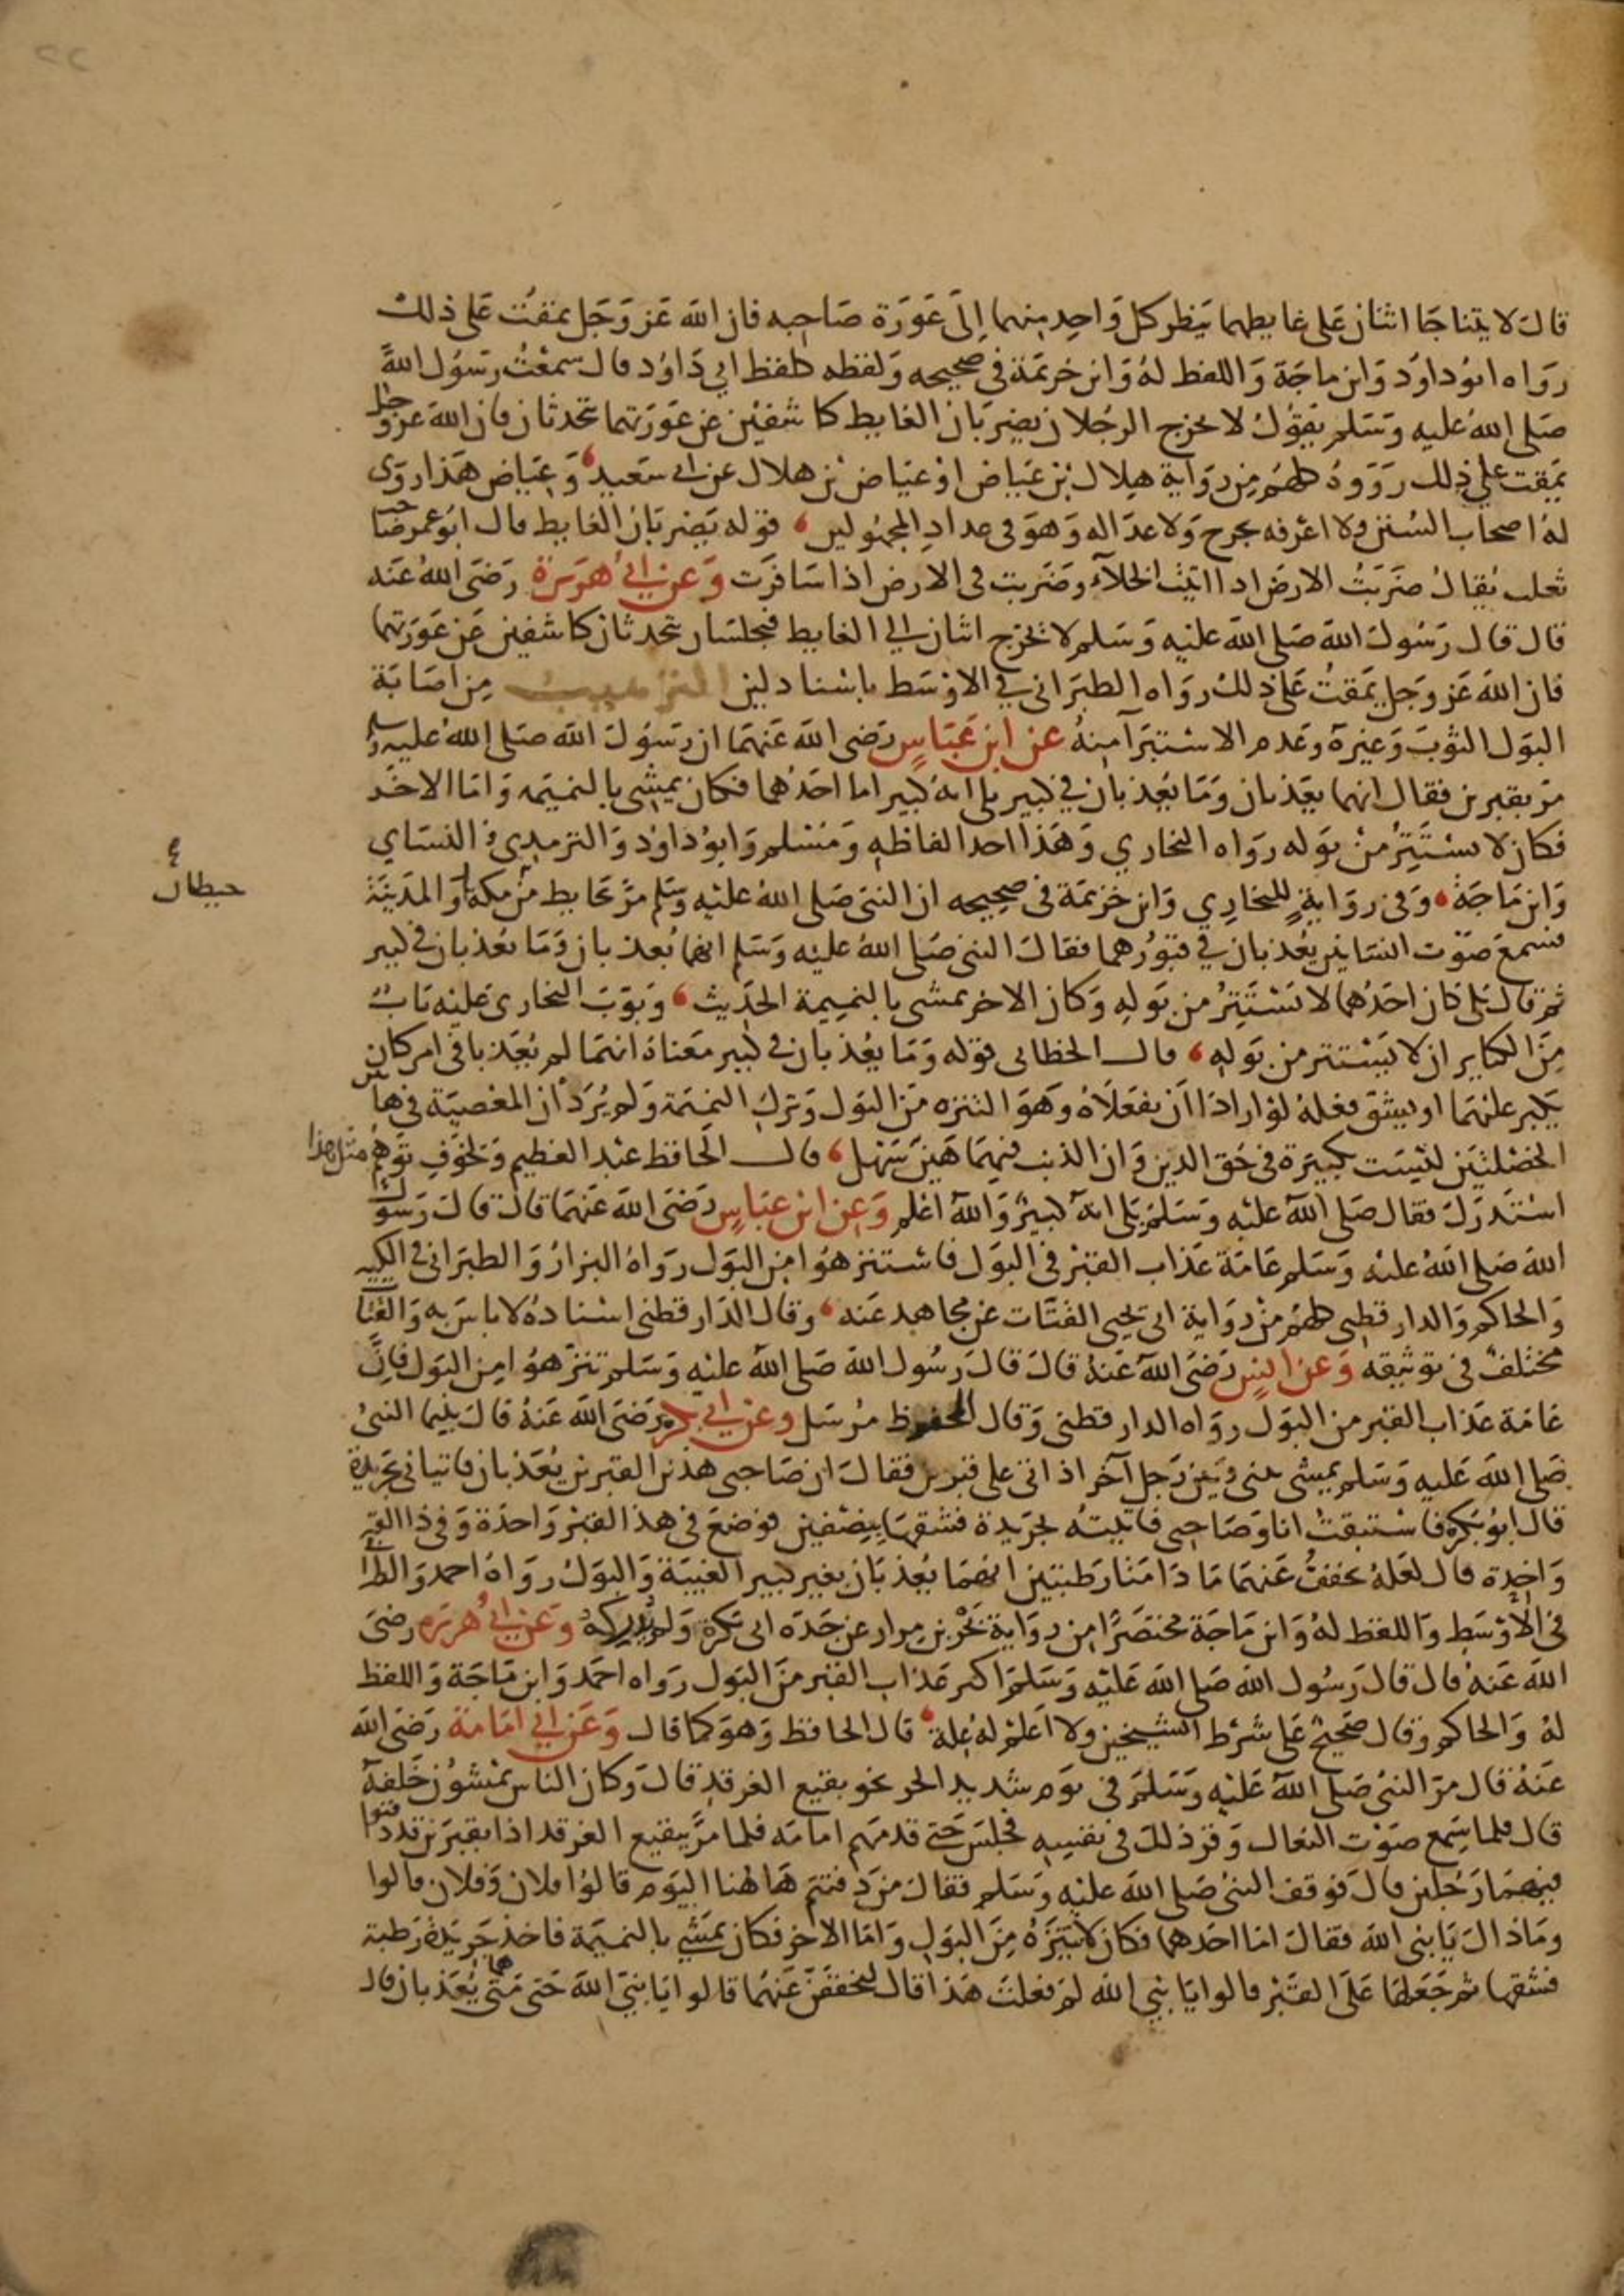 ٢٢
قال لا يتناجا اثنان على غايطهما ينظر كل واحد منهما إلى عورة صاحبه فان الله عز وجل يمقت على ذلك
رواه ابوداود وابن ماجة واللفظ له وابن خزيمة في صحيحه ولفظه كلفظ ابي داود قال سمعت رسول الله
صلى الله عليه وسلم يقول لا يخرج الرجلان يضربان الغايط كاشفين عن عورتهما يتحدثان فان الله عز وجل
يمقت على ذلك رووه كلهم من رواية هلال بن عياض او عياض بن هلال عن ابي سعيد وعياض هذا روى
له اصحاب السنن ولا اعرفه بجرح ولا عدالة وهو في عداد المجهولين قوله يضربان الغايط قال ابو عمر صاحب
ثعلب يقال ضربت الارض اذا اتيت الخلاء وضربت في الارض اذا سافرت وعن ابي هريرة رضى الله عنه
قال قال رسول الله صلى الله عليه وسلم لا يخرج اثنان الي الغايط فيجلسان يتحدثان كاشفين عن عورتهما
فان الله عز وجل يمقت على ذلك رواه الطبراني في الاوسط باسناد لين الترهيب من اصابة
البول الثوب وغيره وعدم الاستبرآ منه عن ابن عباس رضى الله عنهما ان رسول الله صلى الله عليه وسلم
مر بقبرين فقال انهما يعذبان وما يعذبان في كبير بلى انه كبير اما احدهما فكان يمشي بالنميمه واما الاخر
فكان لا يستتر من بوله رواه البخاري وهذا احد الفاظه ومسلم وابو داود والترمذي والنساي
وابن ماجة وفي رواية للبخاري وابن خزيمة في صحيحه ان النبي صلى الله عليه وسلم مر بحايط من مكة او المدينة
حيطان
فسمع صوت انسانين يعذبان في قبورهما فقال النبي صلى الله عليه وسلم انهما يعذبان وما يعذبان في كبير
ثم قال بلى كان احدهما لا يستتر من بوله وكان الاخر يمشي بالنميمة الحديث وبوب البخاري عليه باب
من الكباير ان لا يستتر من بوله قال الخطابي قوله وما يعذبان في كبير معناه انهما لم يعذبا في امر كان
يكبر عليهما او يشق فعله لو ارادا ان يفعلاه وهو التنزه من البول وترك النميمة ولم يرد ان المعصية في هاتين
الخصلتين ليست بكبيرة في حق الدين وان الذنب فيهما هين سهل قال الحافظ عبد العظيم ولخوف توهم مثل هذا
استدرك فقال صلى الله عليه وسلم بلى انه كبير والله اعلم وعن ابن عباس رضى الله عنهما قال قال رسول
الله صلى الله عليه وسلم عامة عذاب القبر في البول فاستنزهوا من البول رواه البزار والطبراني في الكبير
والحاكم والدارقطني كلهم من رواية ابي يحيى القتات عن مجاهد عنه وقال الدارقطني اسناده لا باس به والقتات
مختلف في توثيقه وعن انس رضى الله عنه قال قال رسول الله صلى الله عليه وسلم تنزهوا من البول فان
عامة عذاب القبر من البول رواه الدارقطني وقال المحفوظ مرسل وعن ابي بكرة رضى الله عنه قال بينما النبي
صلى الله عليه وسلم يمشي بيني وبين رجل آخر اذ اتى على قبرين فقال ان صاحبي هذين القبرين يعذبان فاتياني بجريدة
قال ابو بكرة فاستبقت انا وصاحبي فاتيته بجريدة فشقها بنصفين فوضع في هذا القبر واحدة وفي ذا القبر
واحدة قال لعله يخفف عنهما ما دامتا رطبتين انهما يعذبان بغير كبير الغيبة والبول رواه احمد والطبراني
في الاوسط واللفظ له وابن ماجة مختصرا من رواية بحر بن مرار عن جده ابي بكرة ولم يدركه وعن ابي هريره رضى
الله عنه قال قال رسول الله صلى الله عليه وسلم اكبر عذاب القبر من البول رواه احمد وابن ماجة واللفظ
له والحاكم وقال صحيح على شرط الشيخين ولا اعلم له علة قال الحافظ وهو كما قال وعن ابي امامة رضى الله
عنه قال مر النبي صلى الله عليه وسلم في يوم شديد الحر نحو بقيع الغرقد قال وكان الناس يمشون خلفه
قال فلما سمع صوت النعال وقر ذلك في نفسه فجلس حتى قدمهم امامه فلما مر ببقيع الغرقد اذا بقبرين قد دفنوا
فيهما رجلين قال فوقف النبي صلى الله عليه وسلم فقال من دفنتم هاهنا اليوم قالوا فلان وفلان قالوا
وما ذاك يا نبي الله فقال اما احدهما فكان لا يتنزه من البول واما الاخر فكان يمشي بالنميمة فاخذ جريدة رطبة
فشقها ثم جعلها على القبر قالوا يا نبي الله لم فعلت هذا قال ليخففن عنهما قالوا يا نبي الله حتى متى هما يعذبان قال